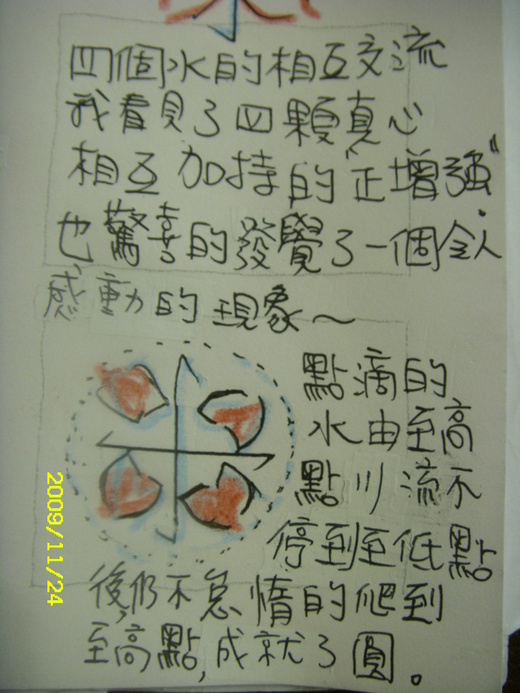 四個水的相互交流
我看見了四顆真心
相互加持的"正增強"
也驚喜的發覺了一個令人
感動的現象～
點滴的
水由至高
點川流不
停到至低點
後,仍不怠惰的爬到
至高點,成就了圓。
2009/11/24